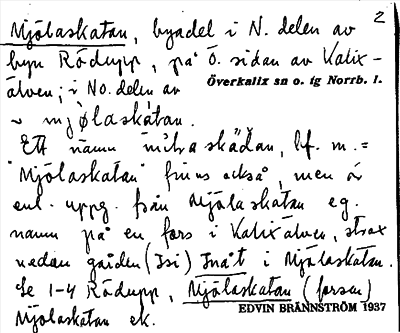 2
Mjölaskatan, byadel i N. delen av
byn Rödupp, på Ö. sidan av Kalix-
älven; i No. delen av
Överkalix sn o. tg Norrb. l.
~ mjølaskàtan.
Ett namn skäđan, bf. m. =
"Mjölaskatan" finns också, men är
enl. uppg. från Mjölaskatan eg.
namn på en fors i Kalixälven, strax
nedan gården (Isi) Inåt i Mjölaskatan.
Se 1-4 Rödupp, Mjölaskatan (forsen)
EDVIN BRÄNNSTRÖM 1937
Mjölaskatan ek.